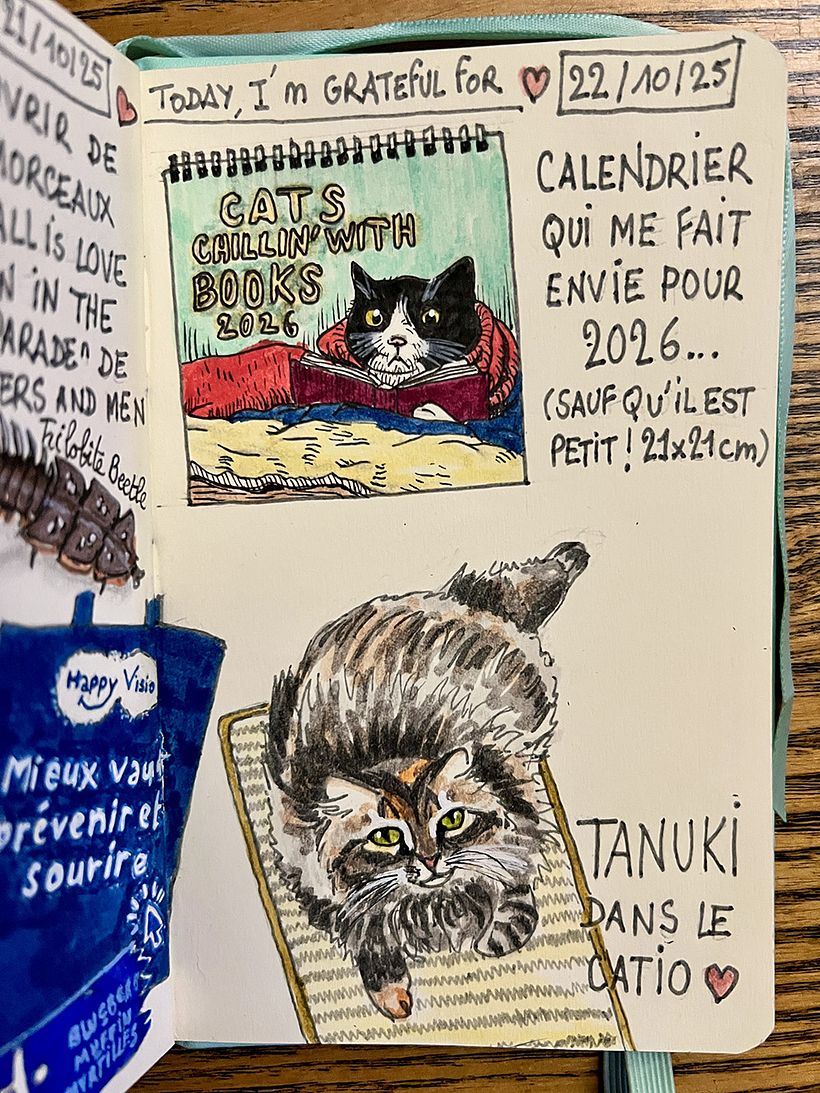 21/10/25
DE
MORCEAUX
ALL iS LOVE
iN THE
PARADE" DE
AND MEN
Trilobite Beetle
Happy Visio
Mieux vaut
prévenir et
sourire
MUFFIN
MYRTILLES
TODAY, I'm GRATEFUL FOR
22/10/25
CATS
CHILLIN' WITH
BOOKS
2026
CALENDRIER
QUi ME FAiT
ENViE POUR
2026...
(SAUF QU'iL EST
PETiT! 21x21cm)
TANUKi
DANS LE
CATiO